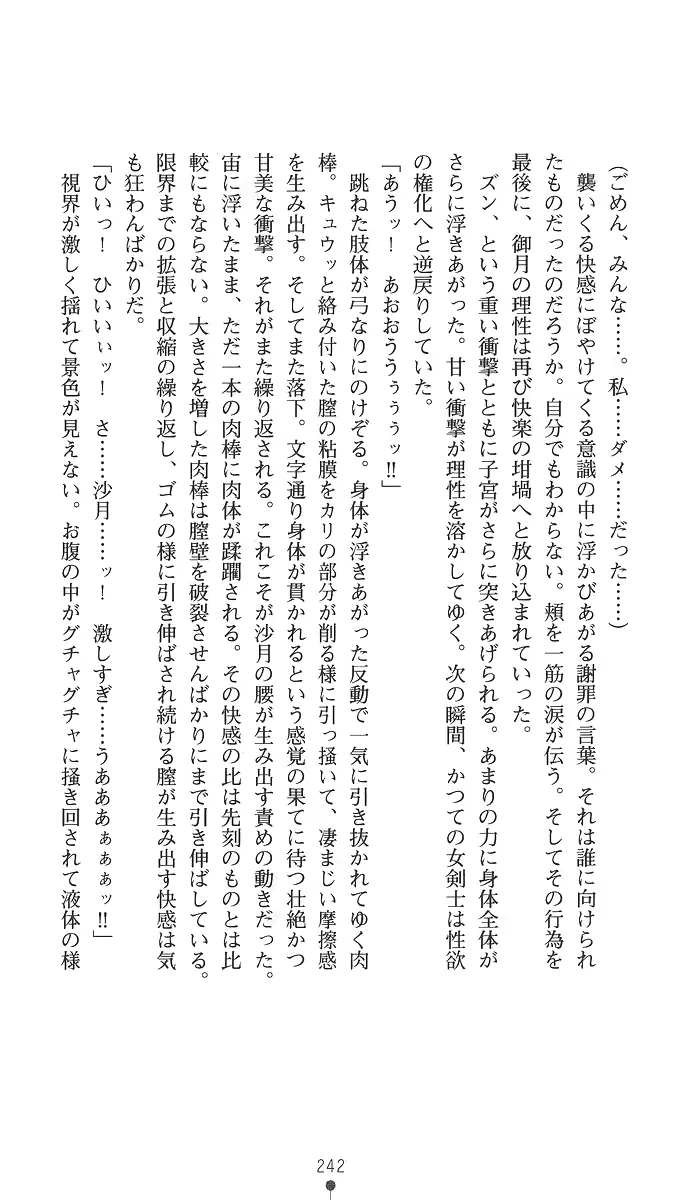 (ごめん、みんな……。私……ダメ……だった……)
　襲いくる快感にぼやけてくる意識の中に浮かびあがる謝罪の言葉。それは誰に向けられ
たものだったのだろうか。自分でもわからない。頬を一筋の涙が伝う。そしてその行為を
最後に、御月の理性は再び快楽の坩堝へと放り込まれていった。
　ズン、という重い衝撃とともに子宮がさらに突きあげられる。あまりの力に身体全体が
さらに浮きあがった。甘い衝撃が理性を溶かしてゆく。次の瞬間、かつての女剣士は性欲
の権化へと逆戻りしていた。
「あうッ！　あおおううぅぅぅッ‼」
　跳ねた肢体が弓なりにのけぞる。身体が浮きあがった反動で一気に引き抜かれてゆく肉
棒。キュウッと絡み付いた膣の粘膜をカリの部分が削る様に引っ掻いて、凄まじい摩擦感
を生み出す。そしてまた落下。文字通り身体が貫かれるという感覚の果てに待つ壮絶かつ
甘美な衝撃。それがまた繰り返される。これこそが沙月の腰が生み出す責めの動きだった。
宙に浮いたまま、ただ一本の肉棒に肉体が蹂躙される。その快感の比は先刻のものとは比
較にもならない。大きさを増した肉棒は膣壁を破裂させんばかりにまで引き伸ばしている。
限界までの拡張と収縮の繰り返し、ゴムの様に引き伸ばされ続ける膣が生み出す快感は気
も狂わんばかりだ。
「ひいっ！　ひいいぃッ！　さ……沙月……ッ！　激しすぎ……うあああぁぁぁッ‼」
　視界が激しく揺れて景色が見えない。お腹の中がグチャグチャに掻き回されて液体の様
242